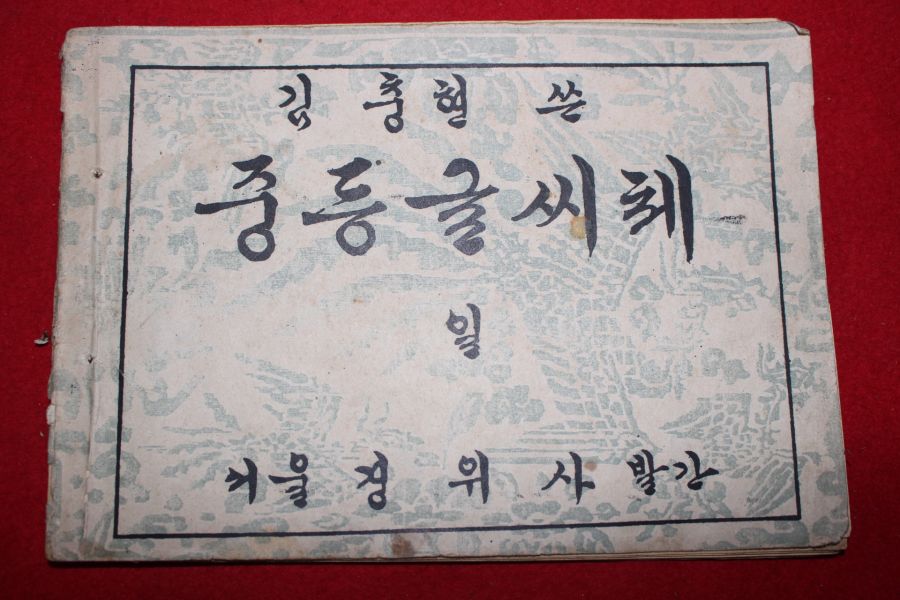 김 충현 쓴
중등글씨체
일
서울 정 위 사 발간